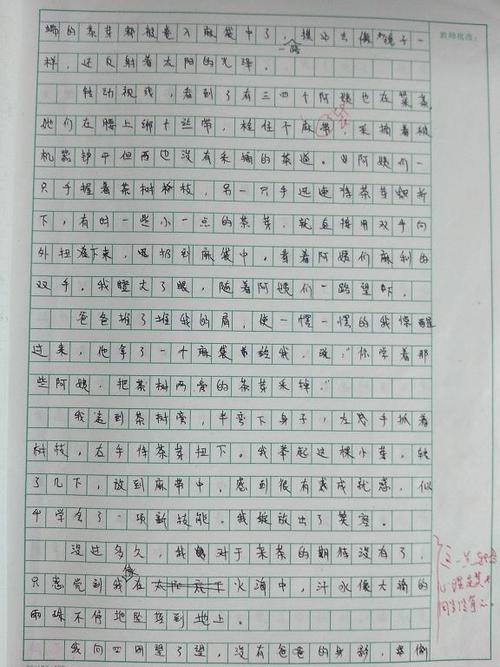 教师批改:
端的茶芽都被卷入麻袋中了,一路
样,还反射着太阳的光泽。
转动视线,看到了有三四个阿姨也在采茶,
她们在腰上绑个丝带,拴住个麻袋,采摘着被
机器钟中但再也没有采摘的茶道。阿姨们一
只手握着茶树的枝,另一只手迅速将茶芽
下,有时一些小一点的茶芽,就直接用双手向
外扭下来,扔到麻袋中,看着阿姨们麻利的
双手,我瞪大了眼,随着阿姨们一路望下。
爸爸推了推我的肩,使一愣一愣的我惊醒
过来,他拿了一个麻袋给我,说:“你学着那
些阿姨,把茶树两旁的茶芽采掉。”
我走到茶树旁,半弯下身子,左手抓着
树枝,右手将茶芽扭下。我举起这棵小芽,转
了几下,放到麻带中,感到很有成就感,似
乎学会了一项新技能。我绽放出了笑容。
没过多久,我对于采茶的期待没有了,
只感觉到我像在火海中,汗水像大滴的
雨珠不停地坠落到地上。
我向四周望了望,没有爸爸的身影,